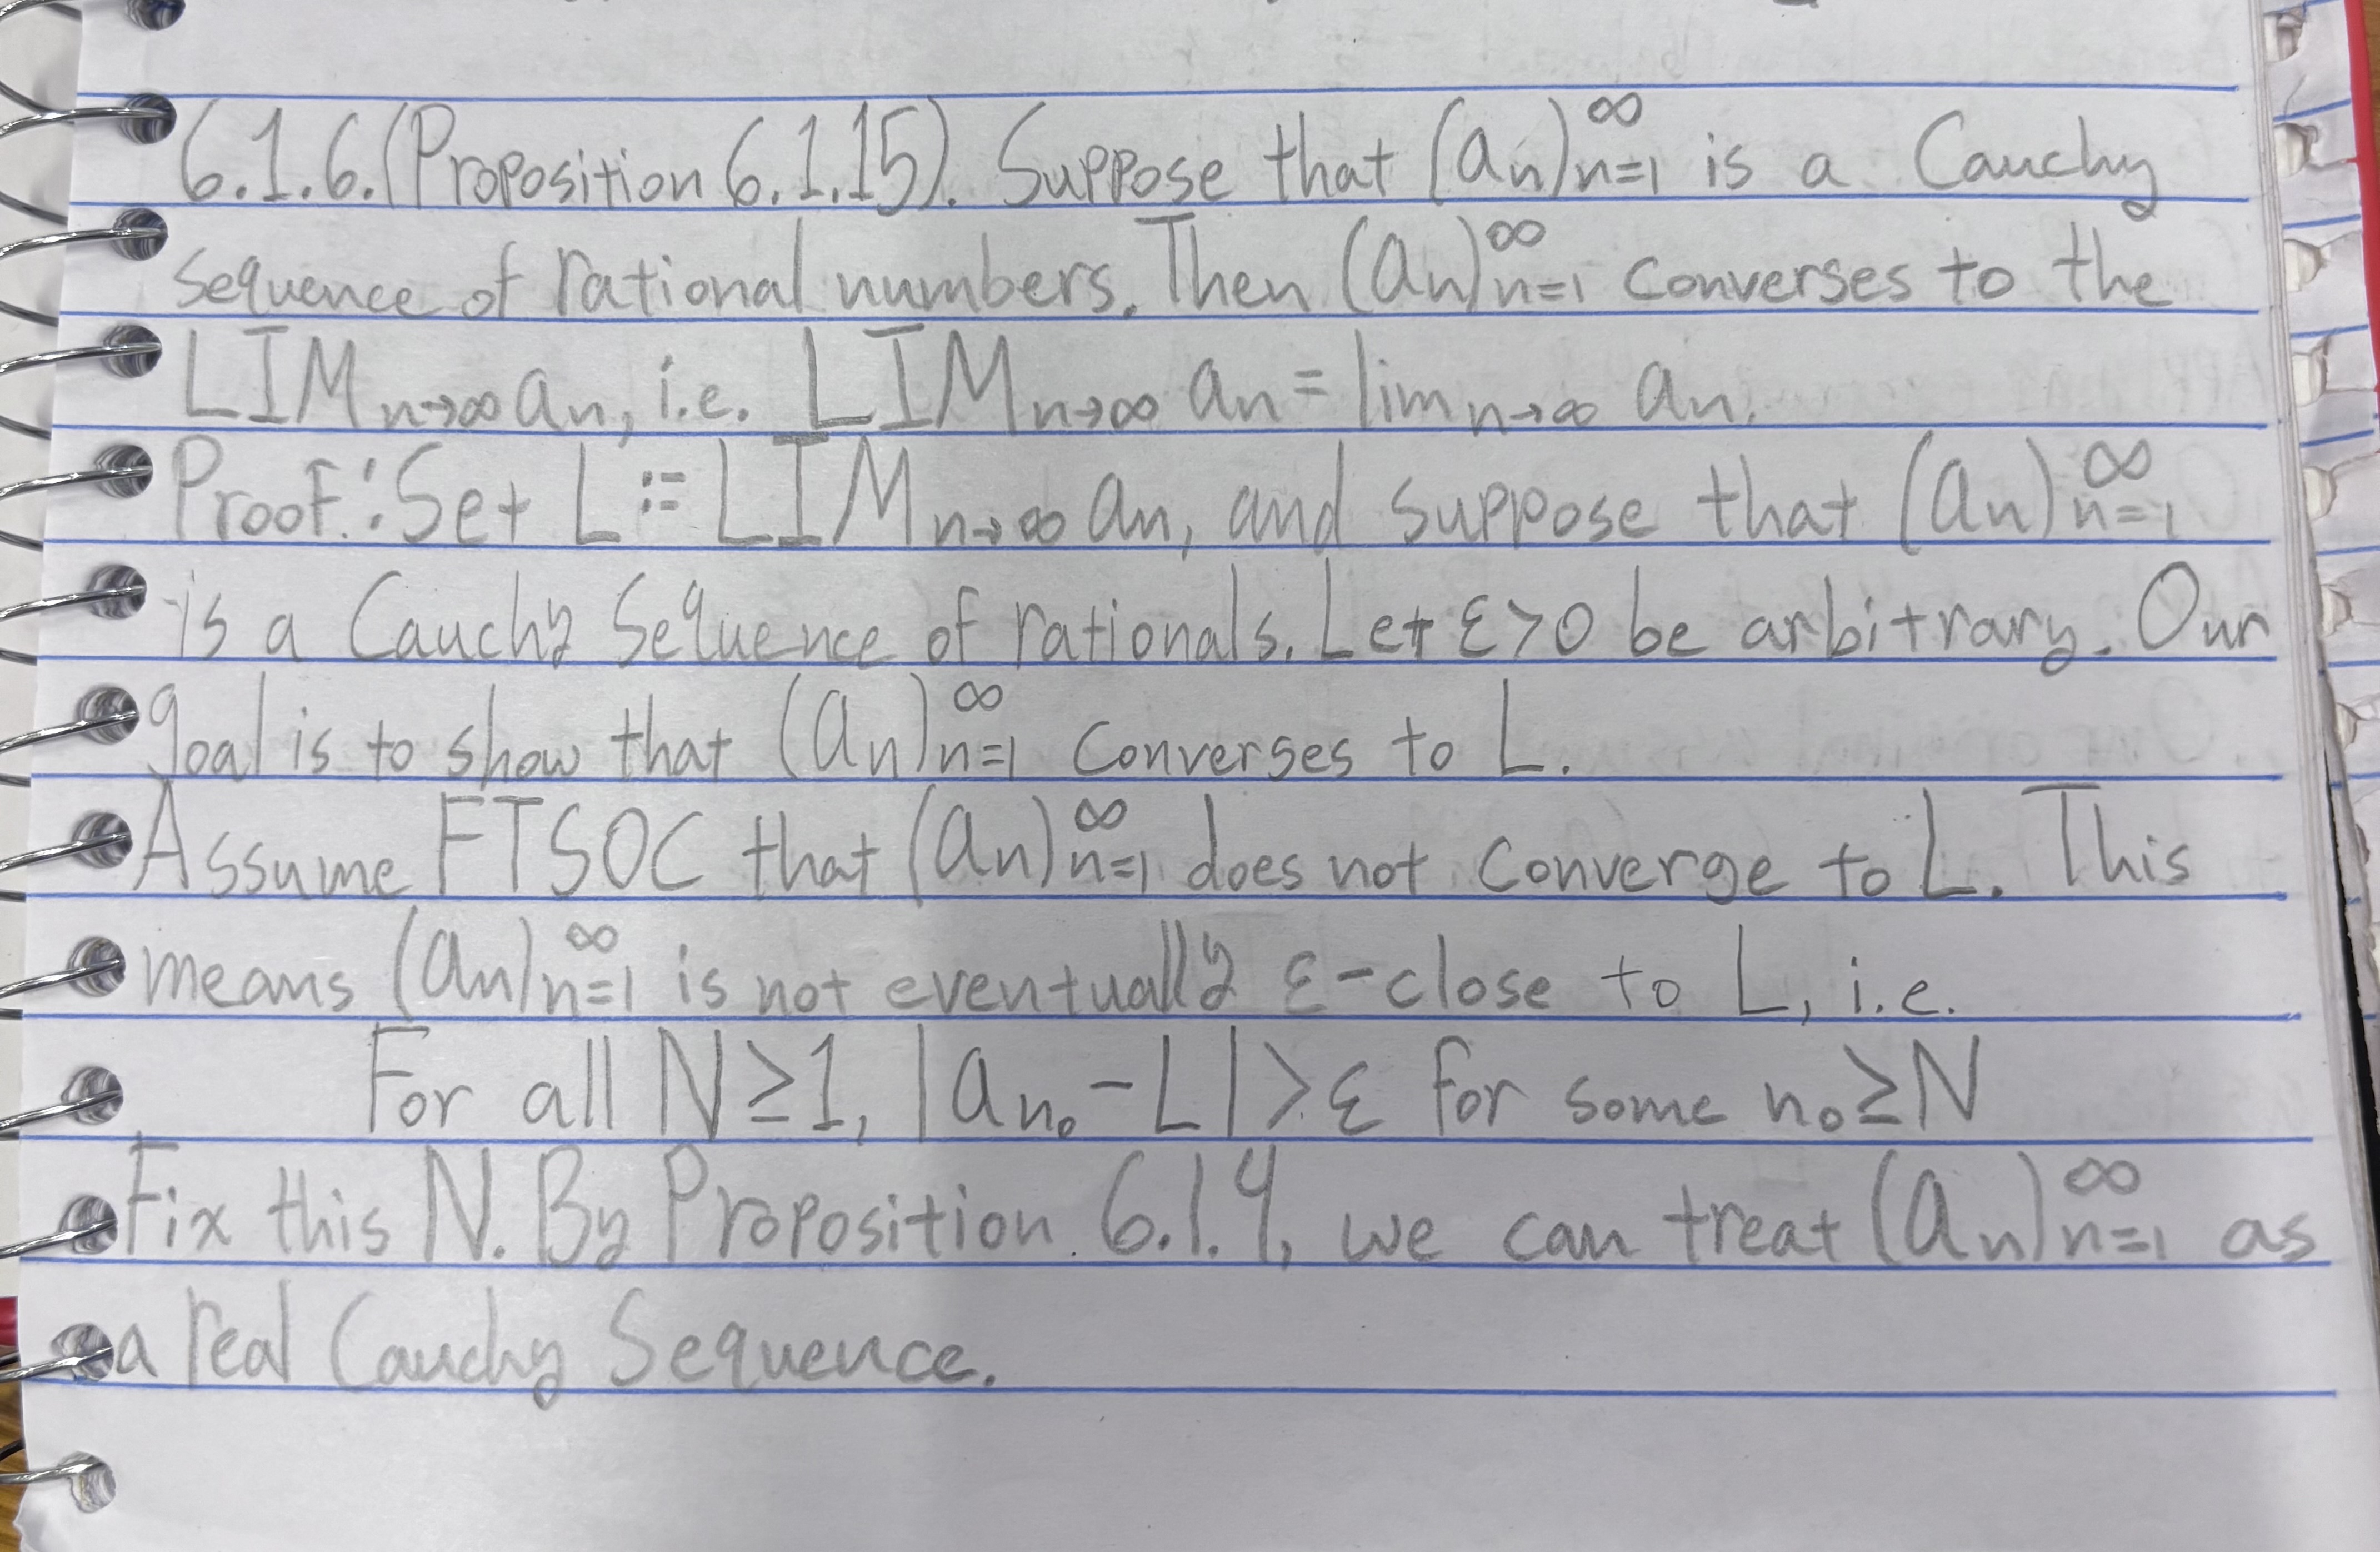 6.1.6. (Proposition 6.1.15). Suppose that (aₙ)ₙ₌₁^∞ is a Cauchy
Sequence of rational numbers. Then (aₙ)ₙ₌₁^∞ converses to the
LIMₙ→∞ aₙ, i.e. LIMₙ→∞ aₙ = limₙ→∞ aₙ.
Proof.: Set L := LIMₙ→∞ aₙ, and suppose that (aₙ)ₙ₌₁^∞
is a Cauchy Sequence of rationals. Let ε>0 be arbitrary. Our
goal is to show that (aₙ)ₙ₌₁^∞ converses to L.
Assume FTSOC that (aₙ)ₙ₌₁^∞ does not converge to L. This
means (aₙ)ₙ₌₁^∞ is not eventually ε-close to L, i.e.
For all N≥1, |aₙ₀ - L|>ε for some n₀≥N
Fix this N. By Proposition 6.1.4, we can treat (aₙ)ₙ₌₁^∞ as
a real Cauchy Sequence.